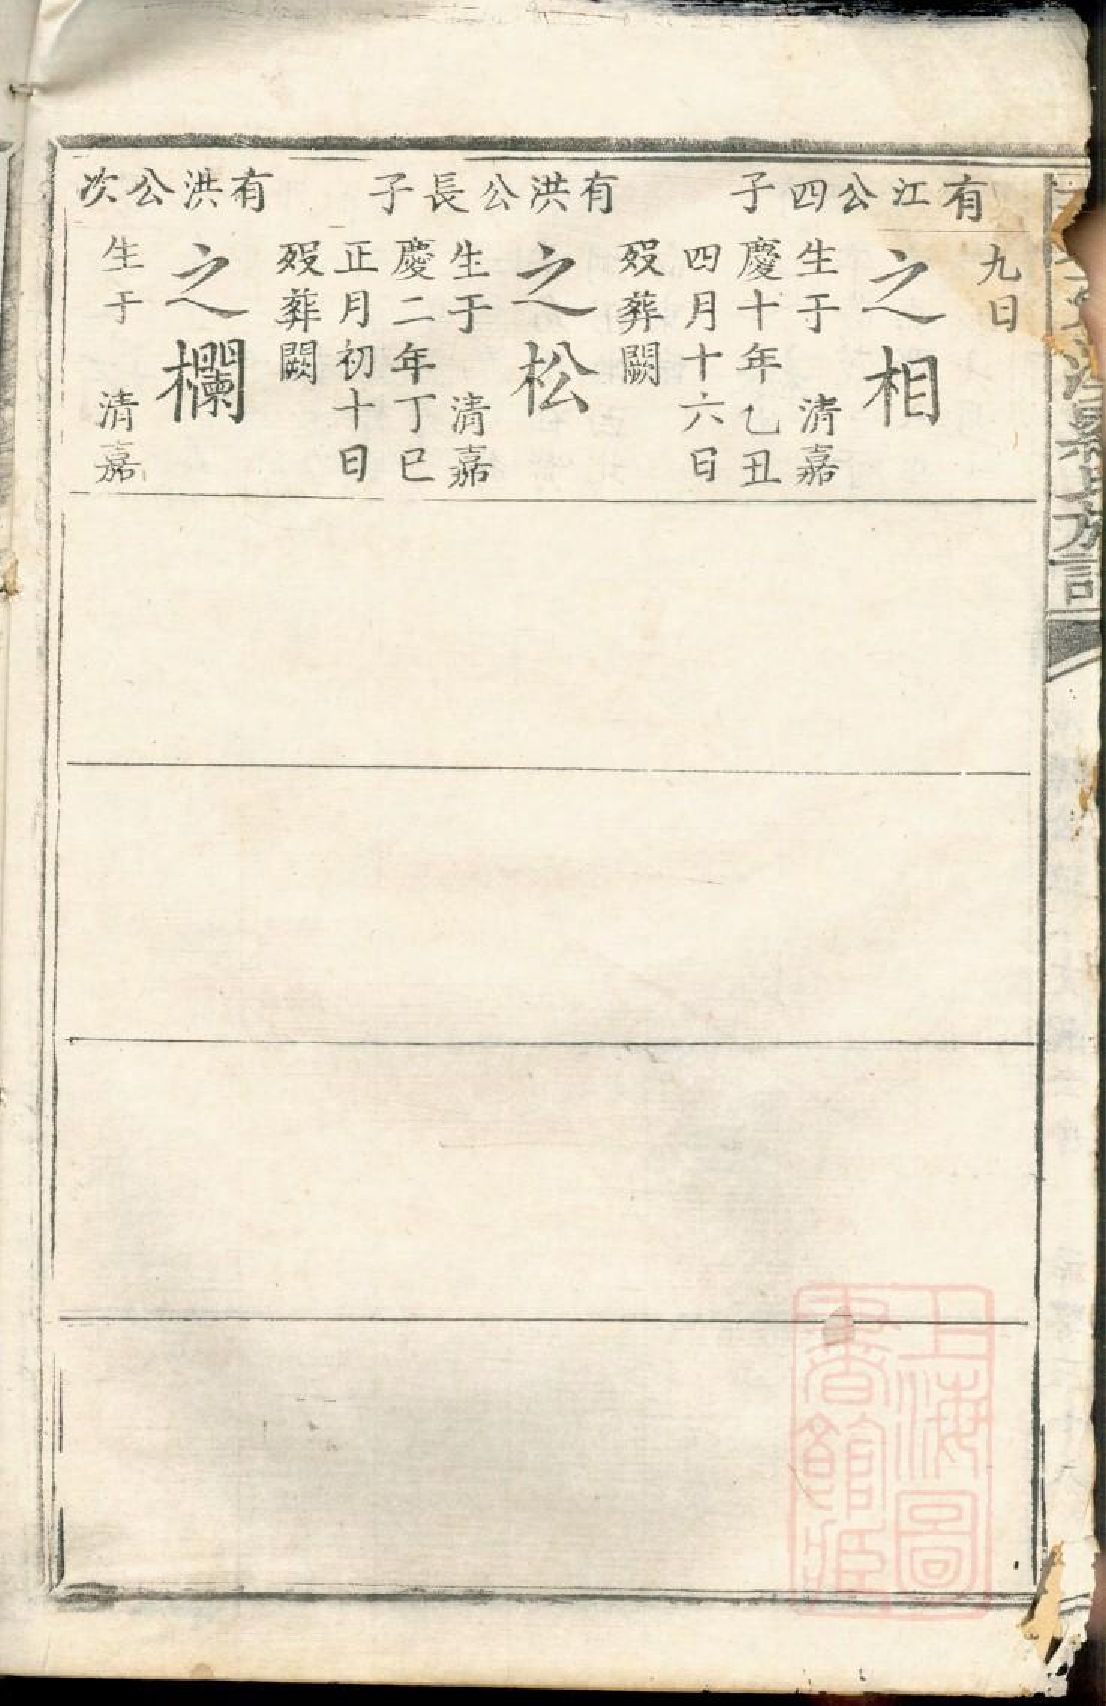 九日
有江公四子
之相
生于 清嘉
慶十年乙丑
四月十六日
歿葬闕
有洪公長子
之松
生于 清嘉
慶二年丁巳
正月初十日
歿葬闕
有洪公次
之欄
生于 清嘉
氏族譜
上海圖
書館藏